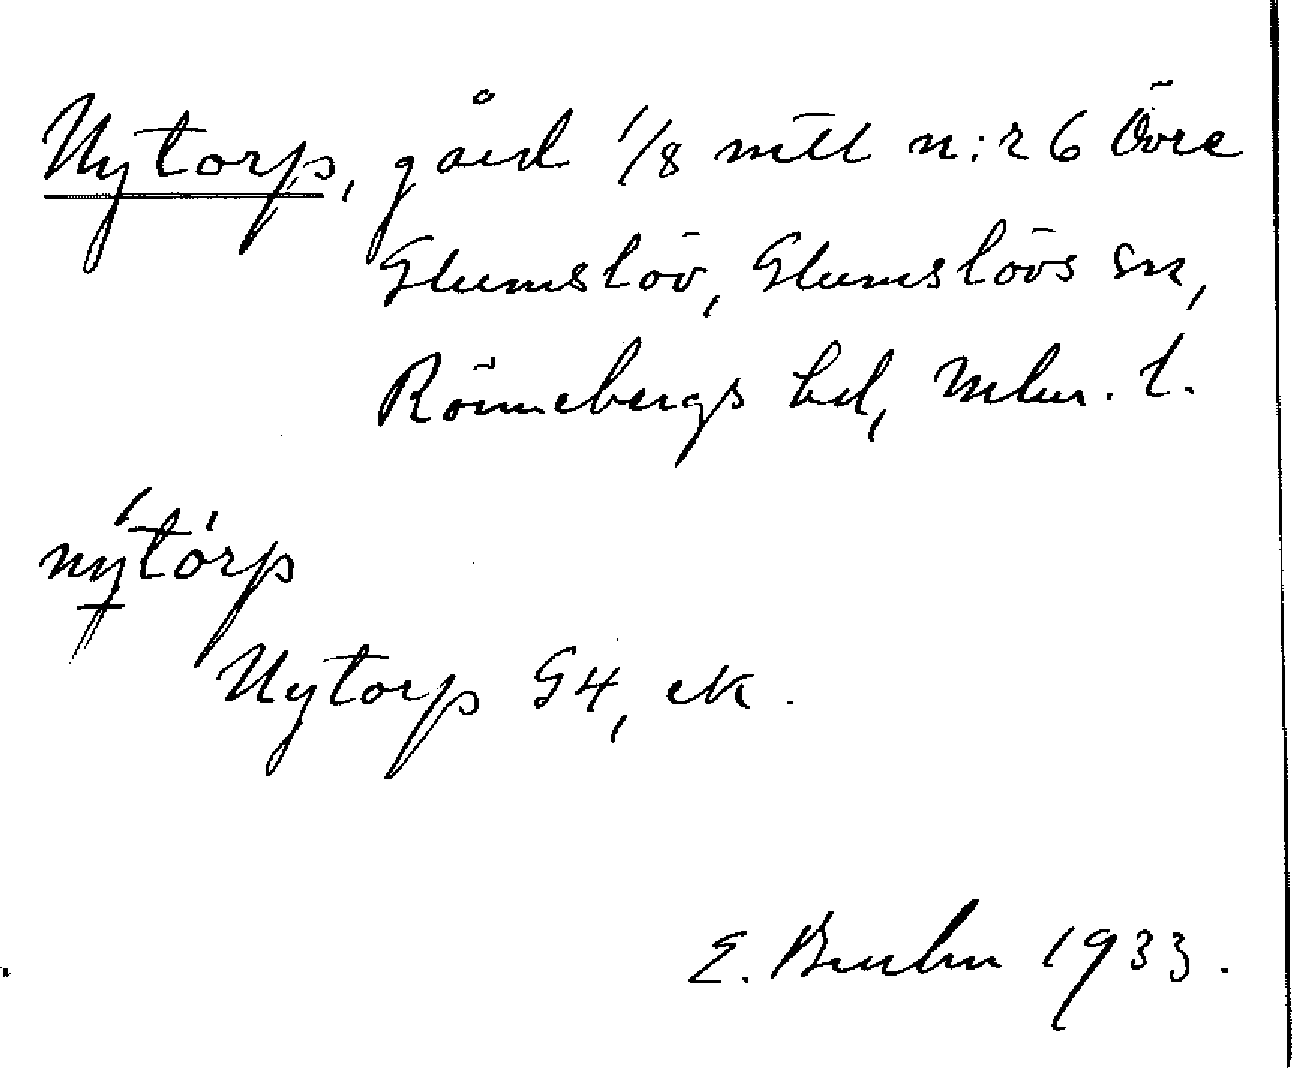 Nytorp, gård 1/8 mtl n:r 6 Övre
Glumslöv, Glumslövs sn,
Rönnebergs hd, Mlm. l.
nýtòrp
Nytorp G4, ek.
E. Bruhn 1933.